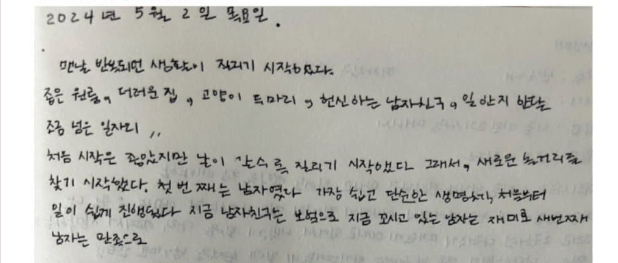 2024년 5월 2일 목요일.
만날 반복되던 생활이 질리기 시작했다.
좁은 원룸, 더러운 집, 고양이 두마리, 헌신하는 남자친구, 일 안지 한달
조금 넘은 일자리,,
처음 시작은 좋았지만 날이 갈수록 질리기 시작했다 그래서, 새로운 놀거리를
찾기 시작했다. 첫 번째는 남자였다 가장 쉽고 단순한 생명체, 처음부터
일이 쉽게 진행됐다 지금 남자친구는 보험으로 지금 꼬시고 있는 남자는 재미로 세번째
남자는 만족으로